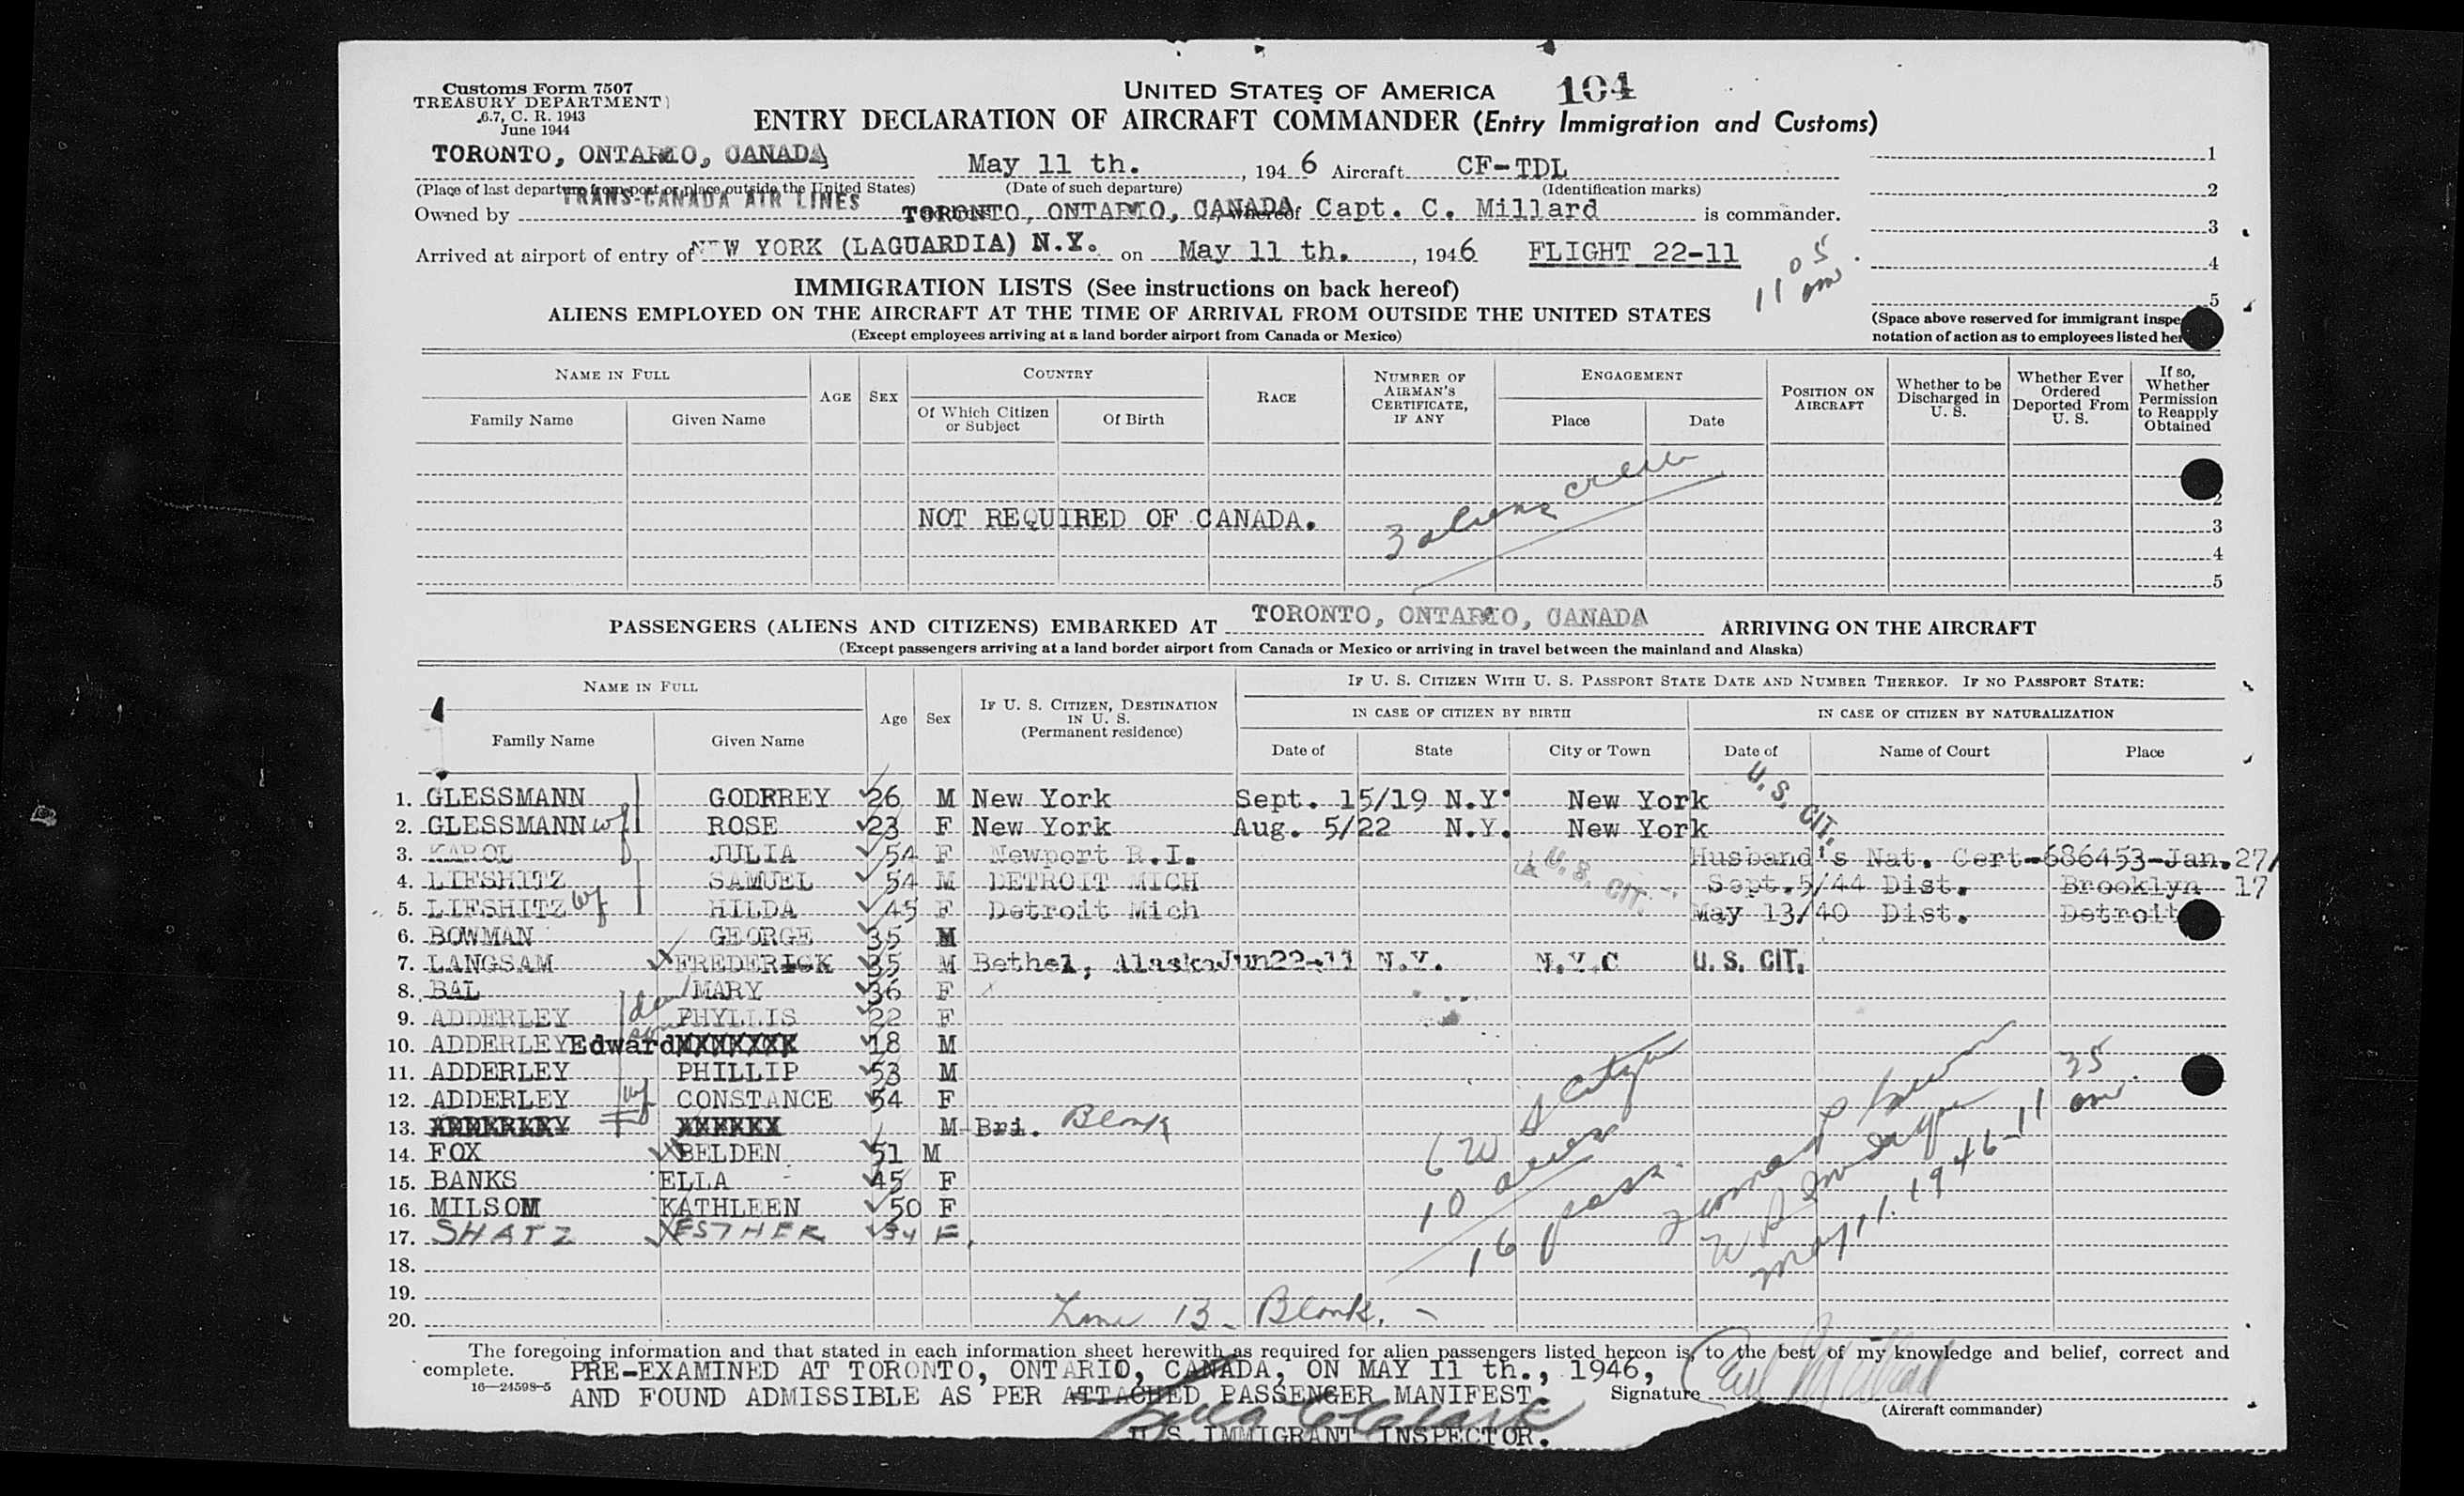 Customs Form 7507
TREASURY DEPARTMENT
6.7, C. R. 1943
June 1944
UNITED STATES OF AMERICA 104
ENTRY DECLARATION OF AIRCRAFT COMMANDER (Entry Immigration and Customs)
TORONTO, ONTARIO, CANADA May 11 th. , 194 6 Aircraft CF-TDL
(Place of last departure from port or place outside the United States) (Date of such departure) (Identification marks)
Owned by TRANS-CANADA AIR LINES TORONTO, ONTARIO, CANADA whereof Capt. C. Millard is commander.
Arrived at airport of entry of NEW YORK (LAGUARDIA) N.Y. on May 11 th. , 1946 FLIGHT 22-11
11 05 am
1
2
3
4
5
(Space above reserved for immigrant inspe
notation of action as to employees listed her
IMMIGRATION LISTS (See instructions on back hereof)
ALIENS EMPLOYED ON THE AIRCRAFT AT THE TIME OF ARRIVAL FROM OUTSIDE THE UNITED STATES
(Except employees arriving at a land border airport from Canada or Mexico)
NAME IN FULL
Family Name Given Name
AGE SEX
COUNTRY
Of Which Citizen or Subject Of Birth
RACE
NUMBER OF AIRMAN'S CERTIFICATE, IF ANY
ENGAGEMENT
Place Date
POSITION ON AIRCRAFT
Whether to be Discharged in U. S.
Whether Ever Ordered Deported From U. S.
If so, Whether Permission to Reapply Obtained
2
NOT REQUIRED OF CANADA. 3
3 aliens crew
4
5
PASSENGERS (ALIENS AND CITIZENS) EMBARKED AT TORONTO, ONTARIO, CANADA ARRIVING ON THE AIRCRAFT
(Except passengers arriving at a land border airport from Canada or Mexico or arriving in travel between the mainland and Alaska)
NAME IN FULL
Family Name Given Name
Age Sex
IF U. S. CITIZEN, DESTINATION IN U. S.
(Permanent residence)
IF U. S. CITIZEN WITH U. S. PASSPORT STATE DATE AND NUMBER THEREOF. IF NO PASSPORT STATE:
IN CASE OF CITIZEN BY BIRTH IN CASE OF CITIZEN BY NATURALIZATION
Date of State City or Town Date of Name of Court Place
1. GLESSMANN GODRREY 26 M New York Sept. 15/19 N.Y. New York U. S. CIT.
2. GLESSMANN wf ROSE 23 F New York Aug. 5/22 N.Y. New York
3. KAROL JULIA 54 F Newport R.I. Husband's Nat. Cert-686453-Jan.27/
4. LIFSHITZ SAMUEL 54 M DETROIT MICH U. S. CIT. Sept.5/44 Dist. Brooklyn 17
5. LIFSHITZ wf HILDA 45 F Detroit Mich May 13/40 Dist. Detroit
6. BOWMAN GEORGE 35 M
7. LANGSAM FREDERICK 35 M Bethel, Alaska Jun22-11 N.Y. N.Y.C U. S. CIT.
8. BAL MARY 36 F
9. ADDERLEY PHYLLIS 22 F
10. ADDERLEY Edward XXXXXXX 18 M
11. ADDERLEY PHILLIP 53 M
12. ADDERLEY wf CONSTANCE 54 F
13. ADDERLEY XXXXXX M Bri. Blank
14. FOX BELDEN 51 M
15. BANKS ELLA 45 F
16. MILSOM KATHLEEN 50 F
17. SHATZ ESTHER 34 F.
18.
19.
20.
6 U S Citizen
10 aliens
16 pass.
May 11. 1946-11 35 am.
Line 13 - Blank. -
The foregoing information and that stated in each information sheet herewith as required for alien passengers listed hereon is, to the best of my knowledge and belief, correct and
complete. PRE-EXAMINED AT TORONTO, ONTARIO, CANADA, ON MAY 11 th., 1946,
16—24598-5
AND FOUND ADMISSIBLE AS PER ATTACHED PASSENGER MANIFEST.
Signature
(Aircraft commander)
U.S. IMMIGRANT INSPECTOR.